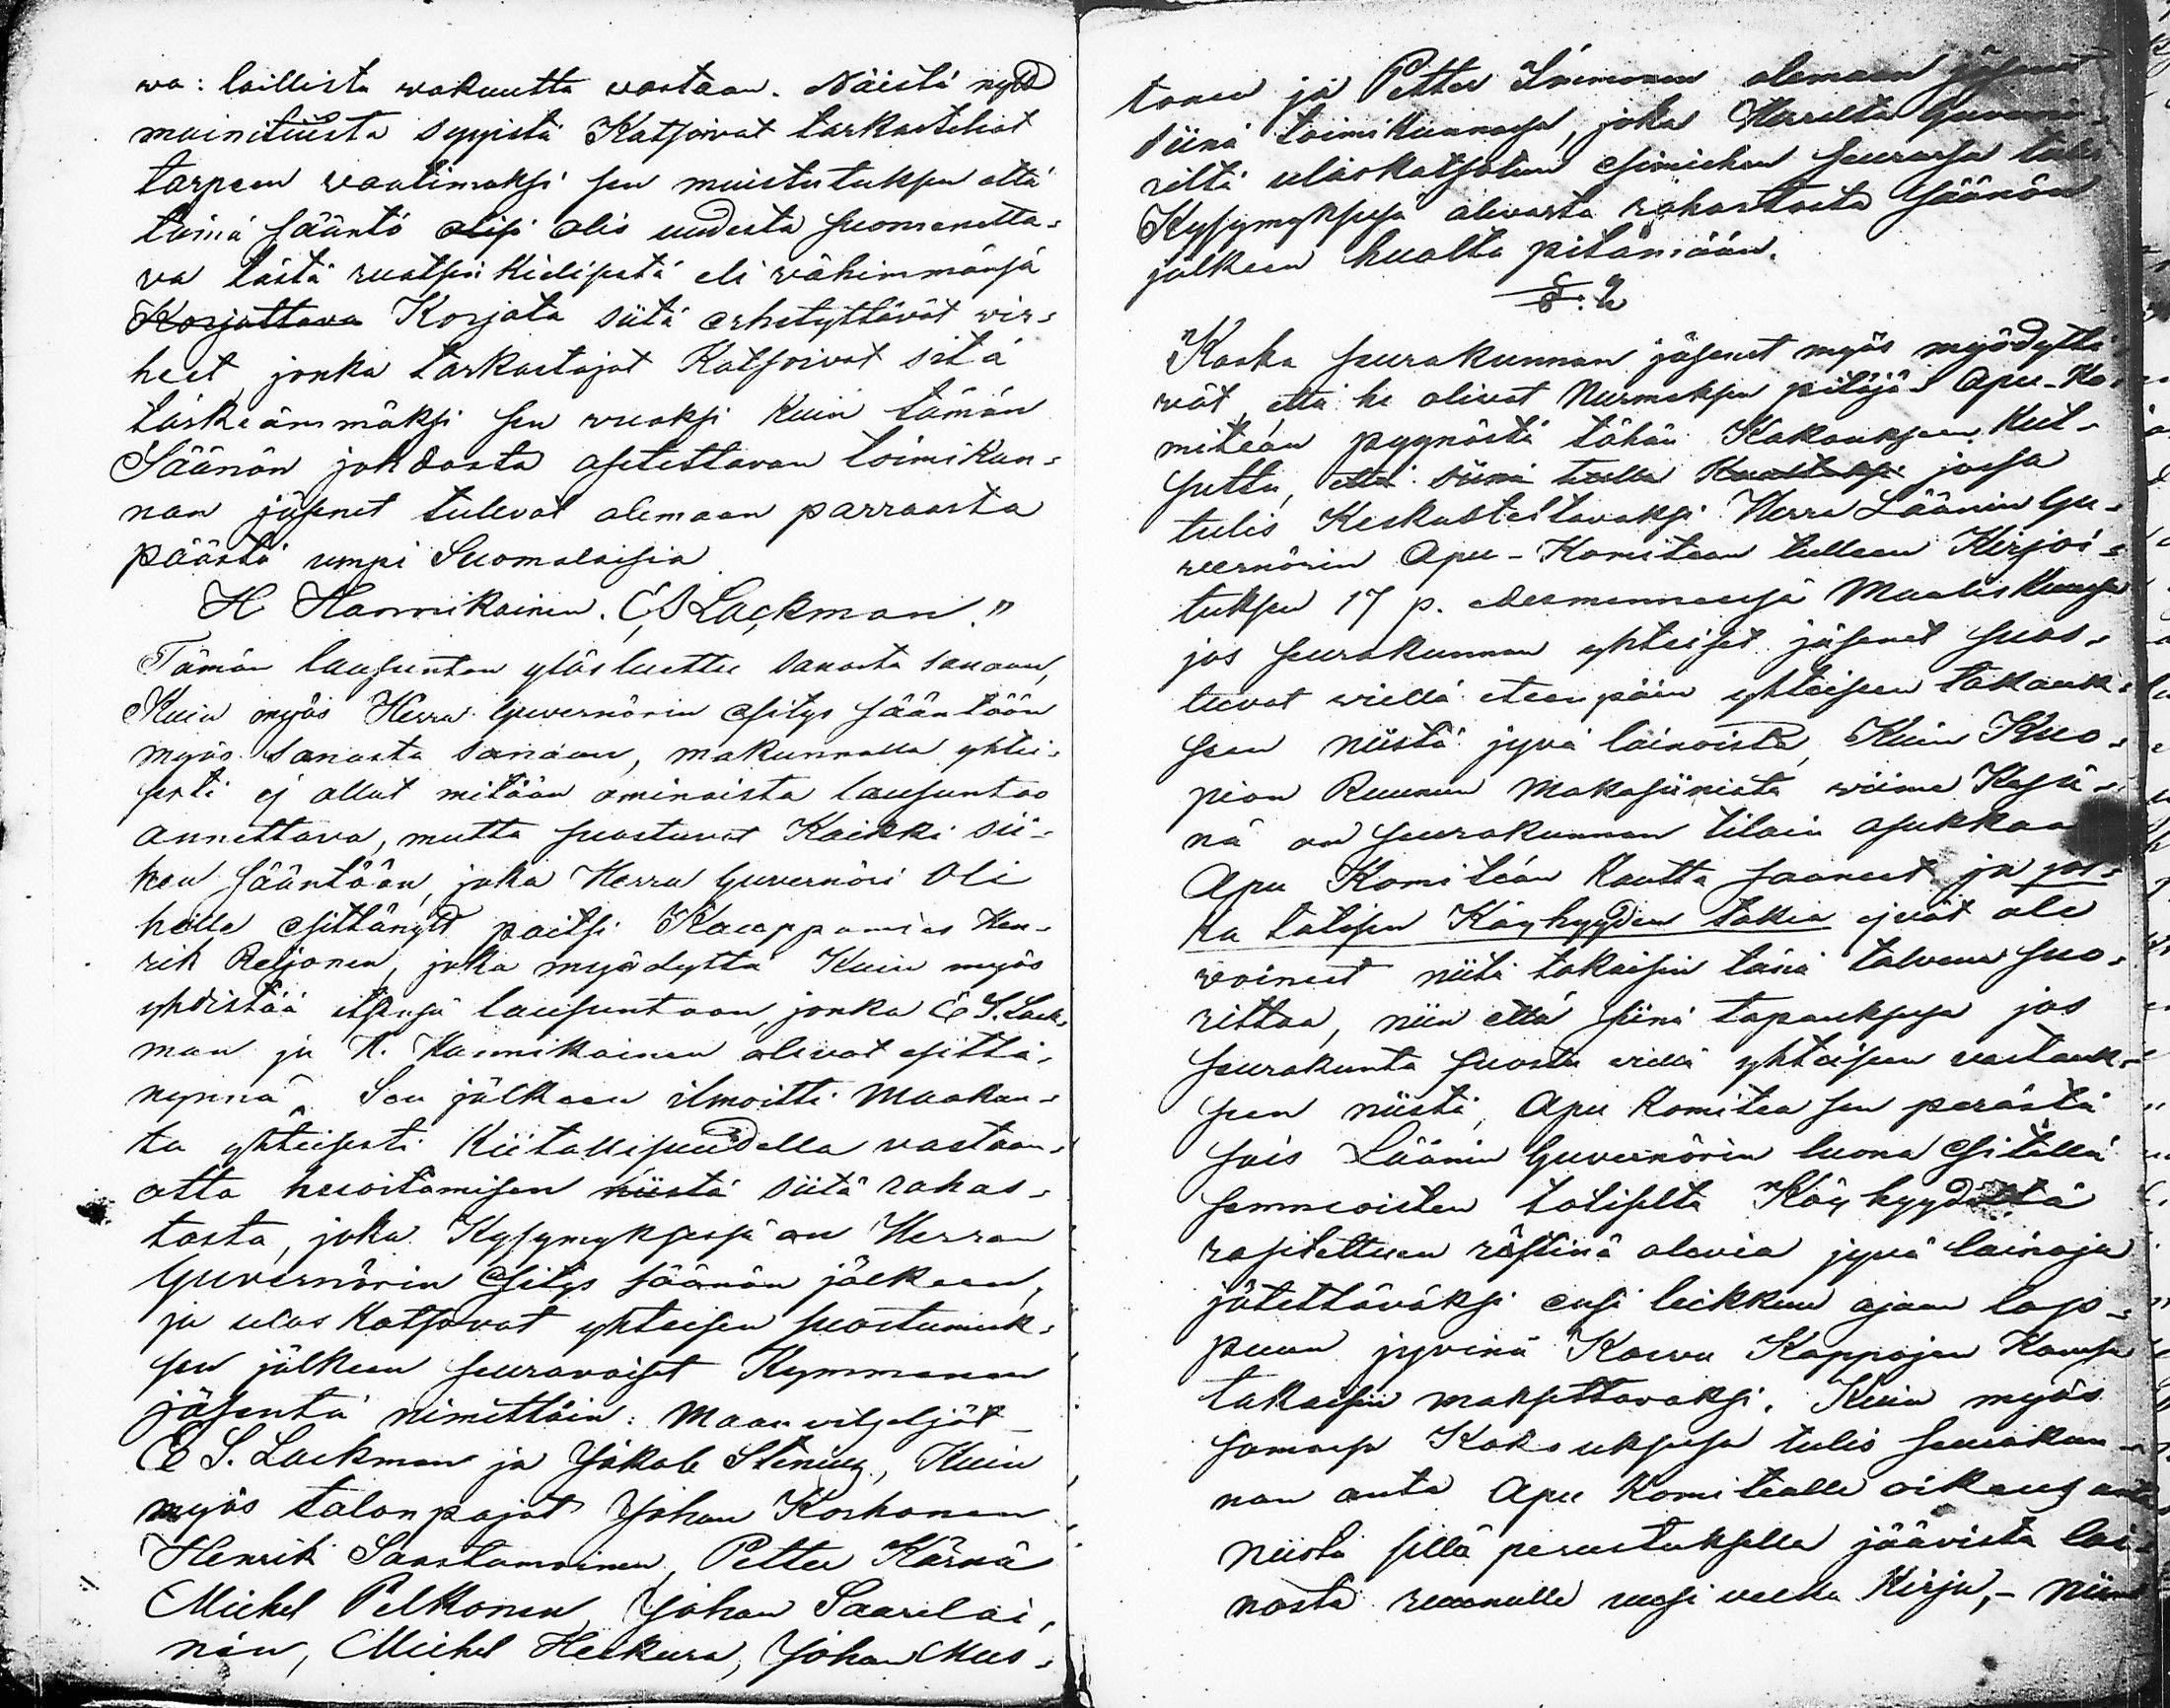 wa: laillista wakuutta vastaan. Näistä nyd
mainituista syyistä Katsoivat tarkasteliat
tarpeen vaatimaksi sen muistutuksen että
tämä sääntö olisi olis uudesta suomenetta-
va tästä ruotsin kielisestä eli vähimmänsä
Korjattava Korjata siitä erhetyttävät vir-
heet jonka tarkastajat Katsoivat sitä
tärkeämmäksi sen vuoksi kuin tämän
Säänön johdosta asetettavan toimikun-
nan jäsenet tulevat olemaan parraasta
päästä umpi Suomalaisia
H Hannikainen. E S Lackman."
Tämän lausunton ylösluettu sanasta sanaan,
Kuin myös Herra Guvernörin esitys sääntöön
myös sanasta sanaan, makunnalla yhtei-
sesti ej ollut mitään ominaista lausuntoo
annettava, mutta suostuvat Kaikki sii-
hen sääntöön, joka Herra Guvernöri oli
heille esittänyt paitsi Kauppamies Hen-
rik Reijonen, joka myödyttä Kuin myös
yhdistää itsensä lausuntoon, jonka E S. Lack-
man ja H. Hannikainen olivat esittä-
nynnä. Sen jälkeen ilmoitti Maakun-
ta yhteisesti Kiitollisuudella vastaan-
otta hesoitamisen niistä siitä rahas-
tosta, joka Kysymyksessä on Herran
Guvernörin Esitys säänön jälkeen,
ja ulos Katsovat yhteisen suostumuk-
sen jälkeen seuravaiset Kymmenen
jäsentä nimittäin: Maanviljeljät
E S. Lackman ja Jakob Stenius, Kuin
myös talonpajat Johan Korhonen
Henrik Saastamoinen, Petter Kärnä
Michel Pelkonen, Johan Saarelai-
nen, Michel Heskura, Johan Mus-
tonen ja Petter Immonen olemaan jäsenet
siinä toimikunnassa, joka Herralta Guvernö-
riltä uloskatsotun esimiehen seurassa tulee
Kysymyksessä olevasta rahastosta säänön
jälkeen huolta pitämään.
§: 2
Koska seurakunnan jäsenet myös myödyttä-
vät, että he olivat Nurmeksen pitäjä- Apu-Ko-
mitean pyynöstä tähän Kokoukseen Kut-
suttu, että siinä tulla jossa
tulis Keskusteltavaksi Herra Läänin Gu-
vernörin Apu-Komitean tulleen Kirjoi-
tuksen 17 p. edesmennessä Maaliskuussa
jos seurakunnan yhteiset jäsenet suos-
tuvat viellä eteenpäin yhteiseen takauk-
seen niistä jyvä lainoista, Kuin Kuo-
pion Ruunun Makasiinista viime Kesä-
nä on seurakunnan tilain asukkaat
Apu Komitean kautta saaneet ja jot-
ka totisen Köyhyyden takia ejvät ole
voineet niitä takaisin tänä talvena suo-
rittaa, niin että siinä tapauksessa jos
seurakunta suostu viellä yhteiseen vastauk-
seen niistä, Apu Komitea sen perästä
sais Läänin Guvernörin luona Esitellä
semmoisten totiselta Köyhyydeltä
rasitettuen röstinä olevia jyvä lainoja
jätettäväksi ensi leikkuu ajaan lop-
puun jyvinä Kasvu Kappojen Kanssa
takaisin maksettavaksi. Kuin myös
samassa Kokouksessa tulis seurakun-
nan anta Apu Komitealle oikeus anta
niistä sillä perustuksella jäävistä lai-
nosta ruunulle uusi velka Kirja, - Niin